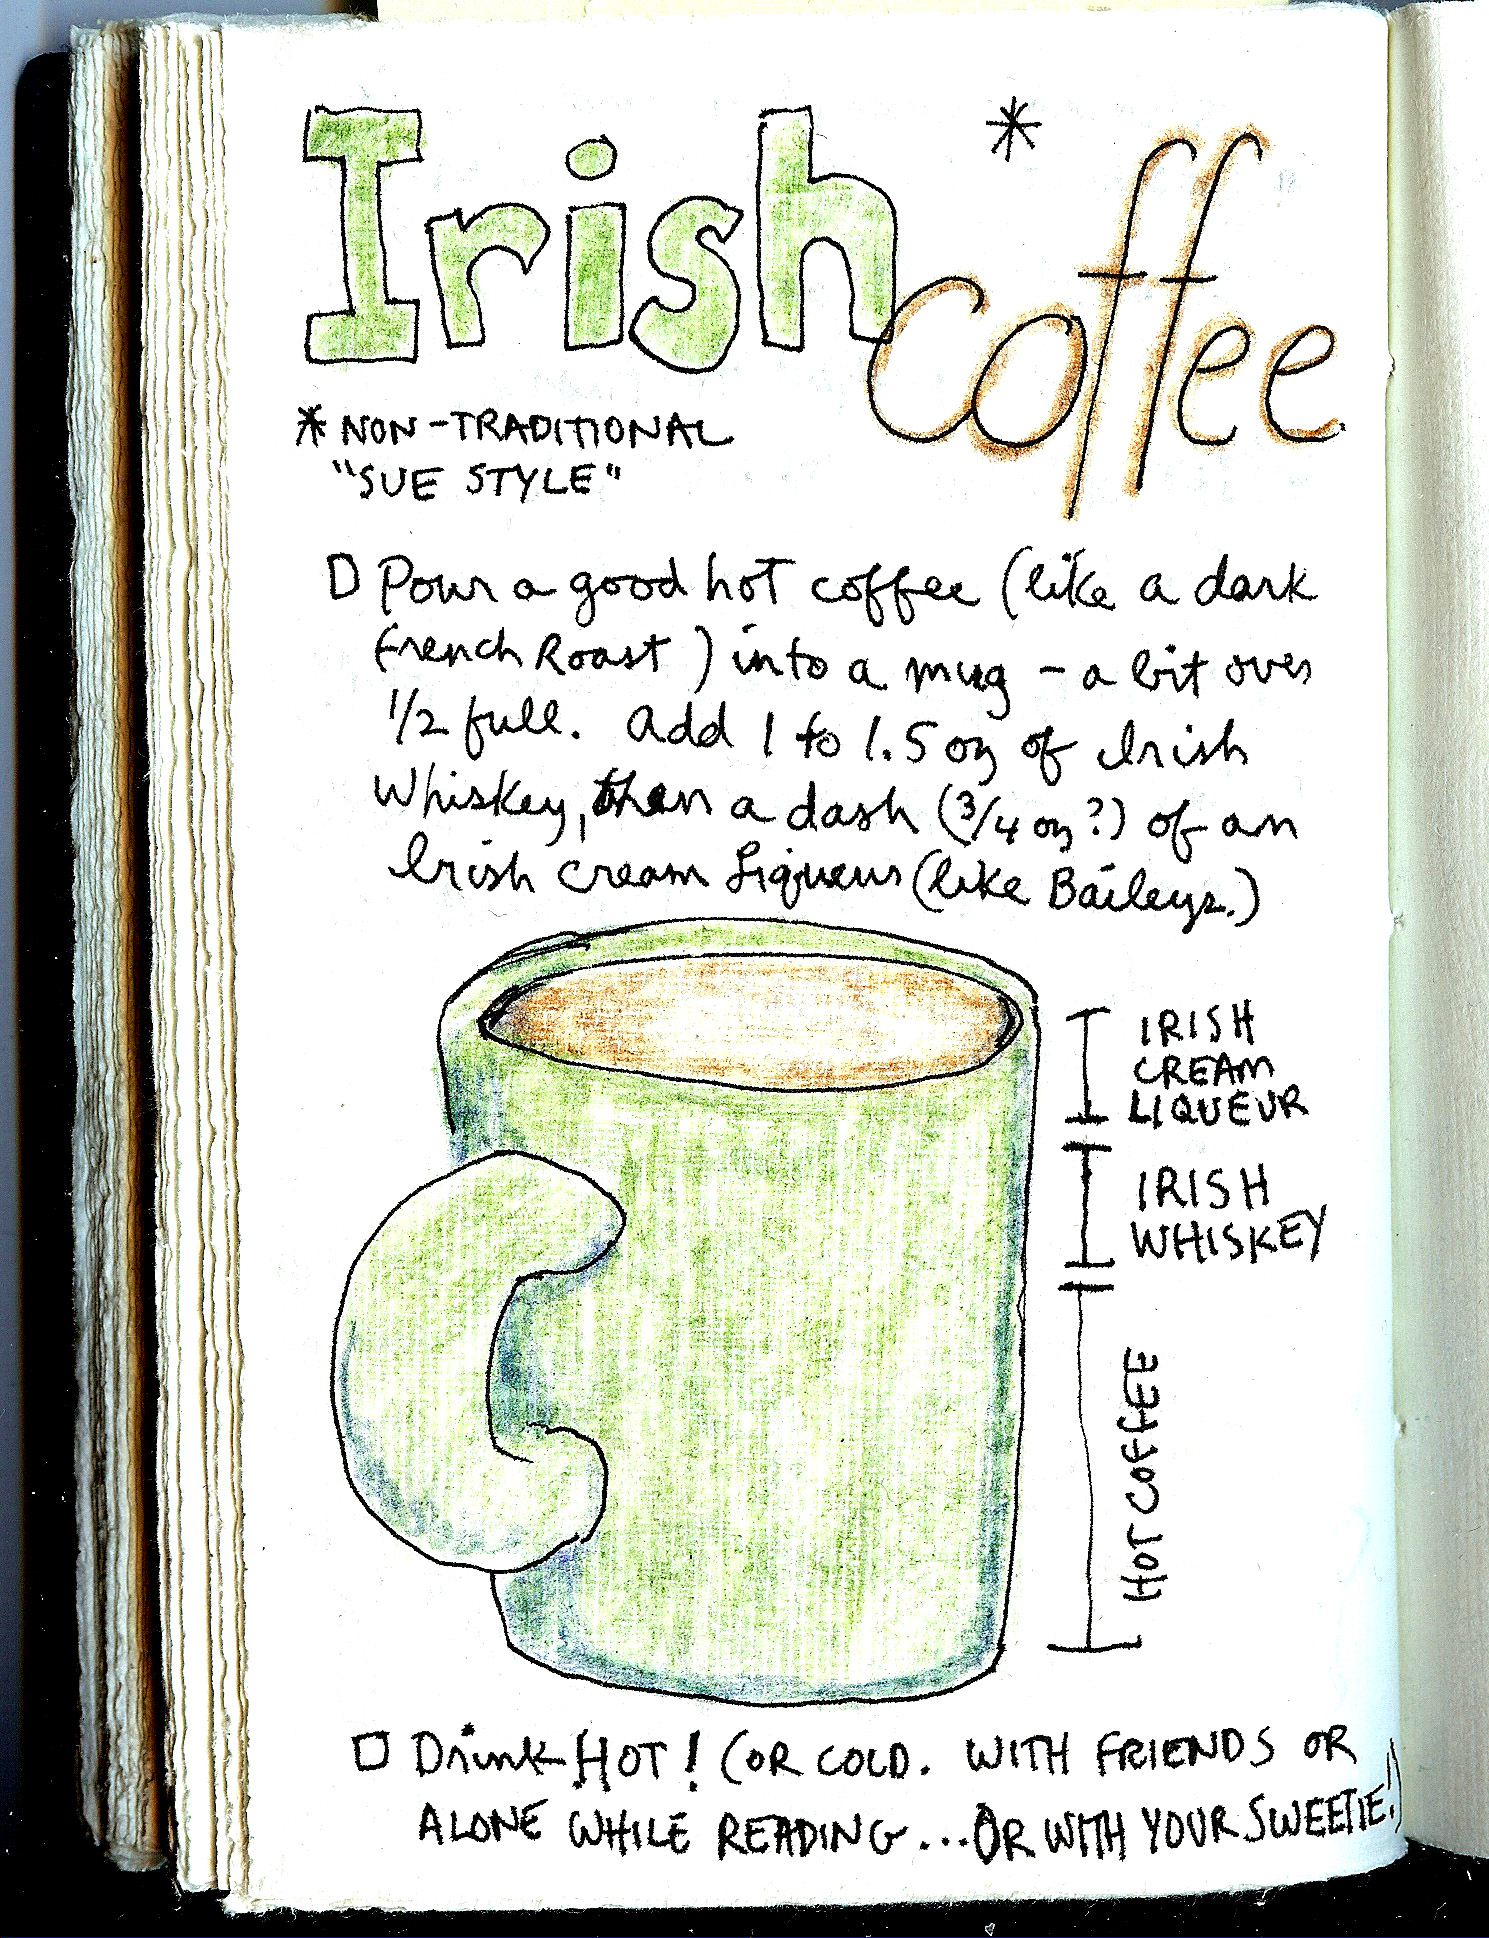 Irish coffee *
* NON-TRADITIONAL
"SUE STYLE"
Pour a good hot coffee (like a dark
French Roast) into a mug - a bit over
1/2 full. Add 1 to 1.5 oz of Irish
Whiskey, then a dash (3/4 oz?) of an
Irish Cream Liqueur (like Baileys.)
IRISH
CREAM
LIQUEUR
IRISH
WHISKEY
HOT COFFEE
Drink HOT! (OR COLD. WITH FRIENDS OR
ALONE WHILE READING... OR WITH YOUR SWEETIE!)